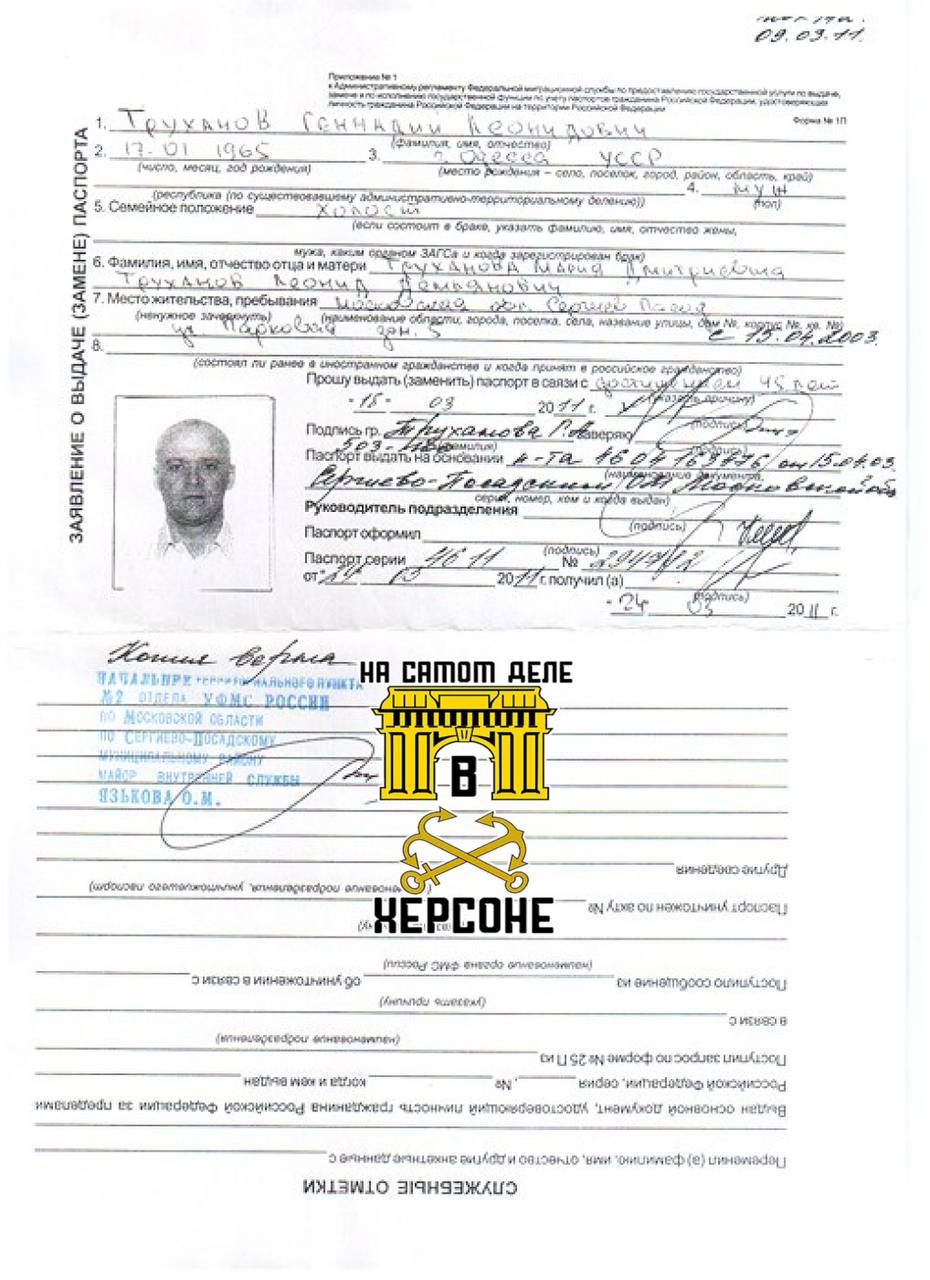 09.03.11.
Приложение № 1
к Административному регламенту Федеральной миграционной службы по предоставлению государственной услуги по выдаче,
замене и по исполнению государственной функции по учету паспортов гражданина Российской Федерации, удостоверяющих
личность гражданина Российской Федерации на территории Российской Федерации
Форма № 1П
ЗАЯВЛЕНИЕ О ВЫДАЧЕ (ЗАМЕНЕ) ПАСПОРТА
1. Труханов Геннадий Леонидович
(фамилия, имя, отчество)
2. 17.01 1965 3. г. Одесса УССР
(число, месяц, год рождения) (место рождения – село, поселок, город, район, область, край)
4. муж
(республика (по существовавшему административно-территориальному делению)) (пол)
5. Семейное положение холост
(если состоит в браке, указать фамилию, имя, отчество жены,
мужа, каким органом ЗАГСа и когда зарегистрирован брак)
6. Фамилия, имя, отчество отца и матери Труханова Мария Дмитриевна
Труханов Леонид Демьянович
7. Место жительства, пребывания Московская обл. Сергиев Посад
(ненужное зачеркнуть) (наименование области, города, поселка, села, название улицы, дом №, корпус №, кв. №)
ул. Парковая зд. 5 с 15.04.2003.
8.
(состоял ли ранее в иностранном гражданстве и когда принят в российское гражданство)
Прошу выдать (заменить) паспорт в связи с достижением 45 лет
(указать причину)
03 2011 г.
(подпись)
Подпись гр. Труханова Г.Л. заверяю
(фамилия) (подпись)
Паспорт выдать на основании п-та 46 04 от 15.04.03.
(наименование документа,
Сергиево-Посадским Московской обл
серия, номер, кем и когда выдан)
Руководитель подразделения
(подпись)
Паспорт оформил
(подпись)
Паспорт серии 46 11 №
от 24 03 2011 г. получил (а)
(подпись)
24 03 2011 г.
Копия верна
НАЧАЛЬНИК ТЕРРИТОРИАЛЬНОГО ПУНКТА
№2 ОТДЕЛА УФМС РОССИИ
ПО МОСКОВСКОЙ ОБЛАСТИ
ПО СЕРГИЕВО-ПОСАДСКОМУ
МУНИЦИПАЛЬНОМУ РАЙОНУ
МАЙОР ВНУТРЕННЕЙ СЛУЖБЫ
ЯЗЬКОВА О.М.
НА САМОМ ДЕЛЕ
В
ХЕРСОНЕ
СЛУЖЕБНЫЕ ОТМЕТКИ
Переменил (а) фамилию, имя, отчество и другие анкетные данные с
Выдан основной документ, удостоверяющий личность гражданина Российской Федерации за пределами
Российской Федерации, серия № когда и кем выдан
Поступил запрос по форме № 25 П из
(наименование подразделения)
в связи с
(указать причину)
Поступило сообщение из об уничтожении в связи с
(наименование органа ФМС России)
Паспорт уничтожен по акту №
подразделения, уничтожившего паспорт)
Другие сведения